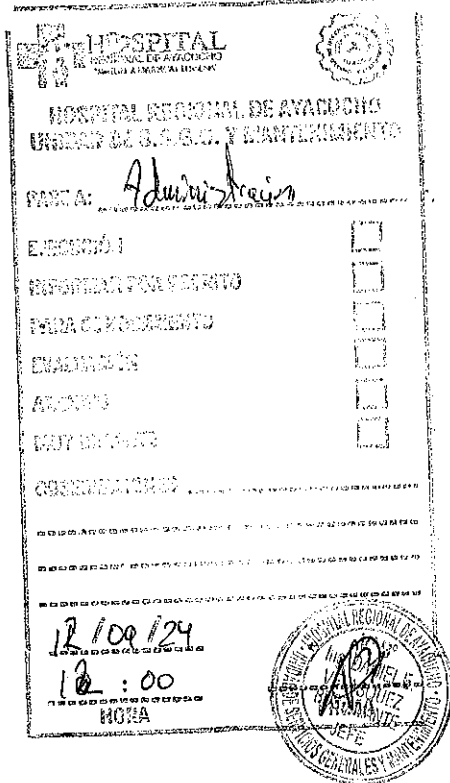 HOSPITAL
REGIONAL DE AYACUCHO
HOSPITAL REGIONAL DE AYACUCHO
UNIDAD DE S.S.G.G. Y MANTENIMIENTO
PASE A: Administración
EJECUCIÓN
INFORMAR POR ESCRITO
PARA CONOCIMIENTO
EVALUACIÓN
ARCHIVO
MUY URGENTE
OBSERVACIONES
12/09/24
12:00
HORA
HOSPITAL REGIONAL DE AYACUCHO
JEFE
SERVICIOS GENERALES Y MANTENIMIENTO